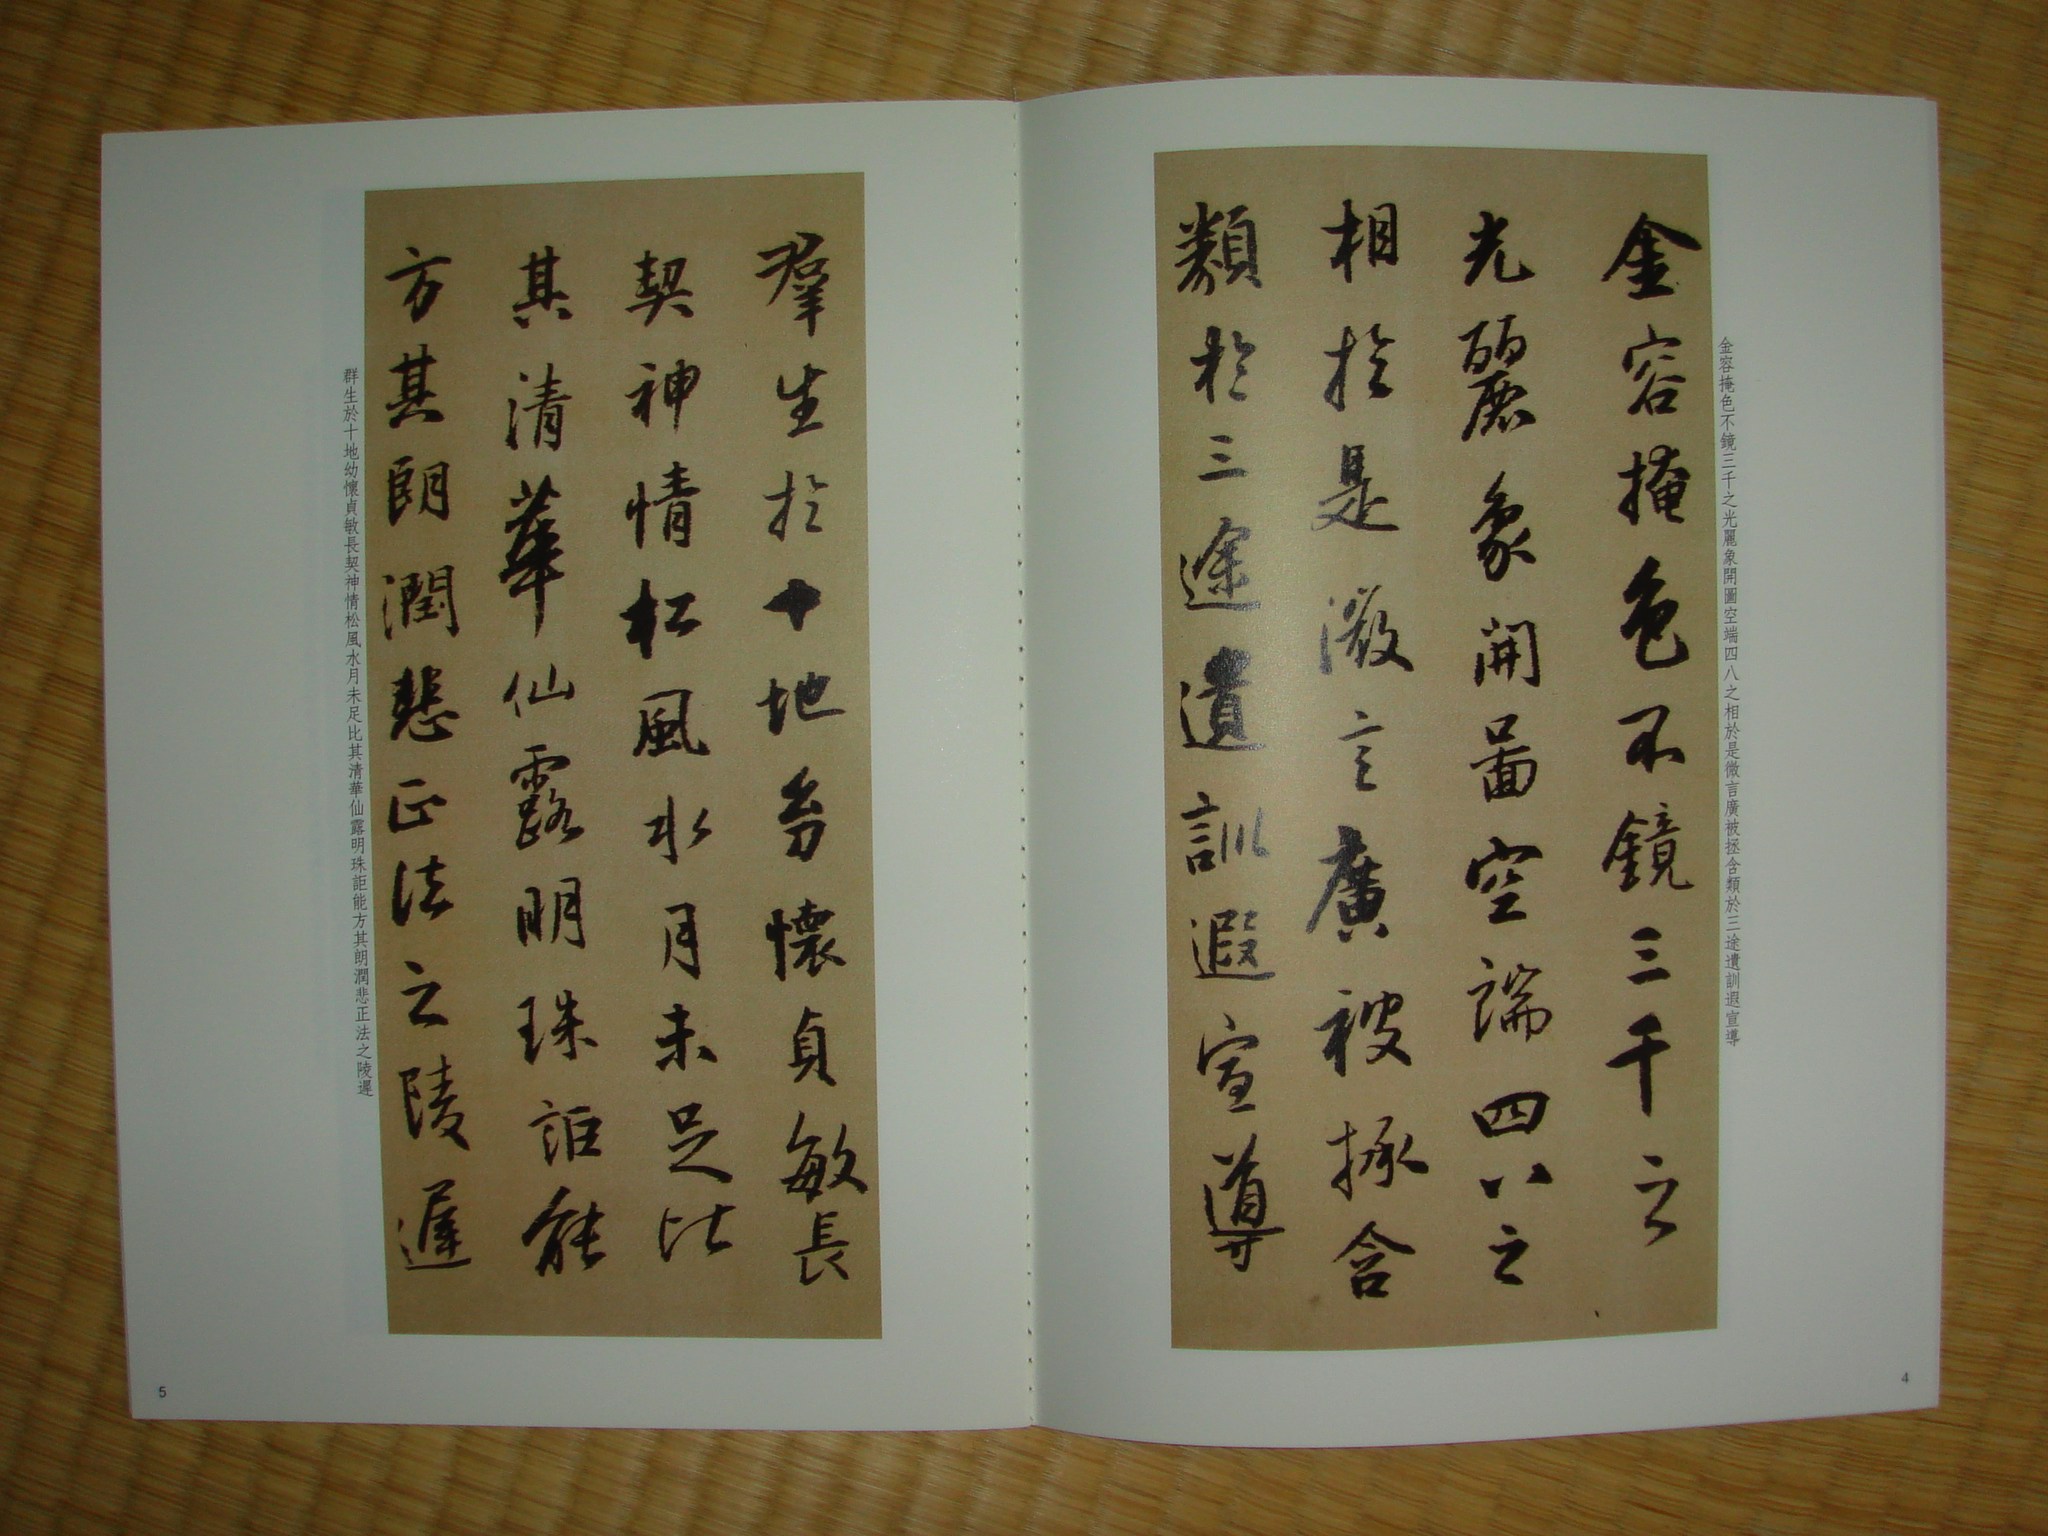 金容掩色不鏡三千之光麗象開圖空端四八之相於是微言廣被拯含類於三途遺訓遐宣導
金容掩色不鏡三千之
光麗象開啚空端四八之
相於是微言廣被拯含
類於三途遺訓遐宣導
4
群生於十地幼懷貞敏長
契神情松風水月未足比
其清華仙露明珠詎能
方其朗潤悲正法之陵遲
群生於十地幼懷貞敏長契神情松風水月未足比其清華仙露明珠詎能方其朗潤悲正法之陵遲
5